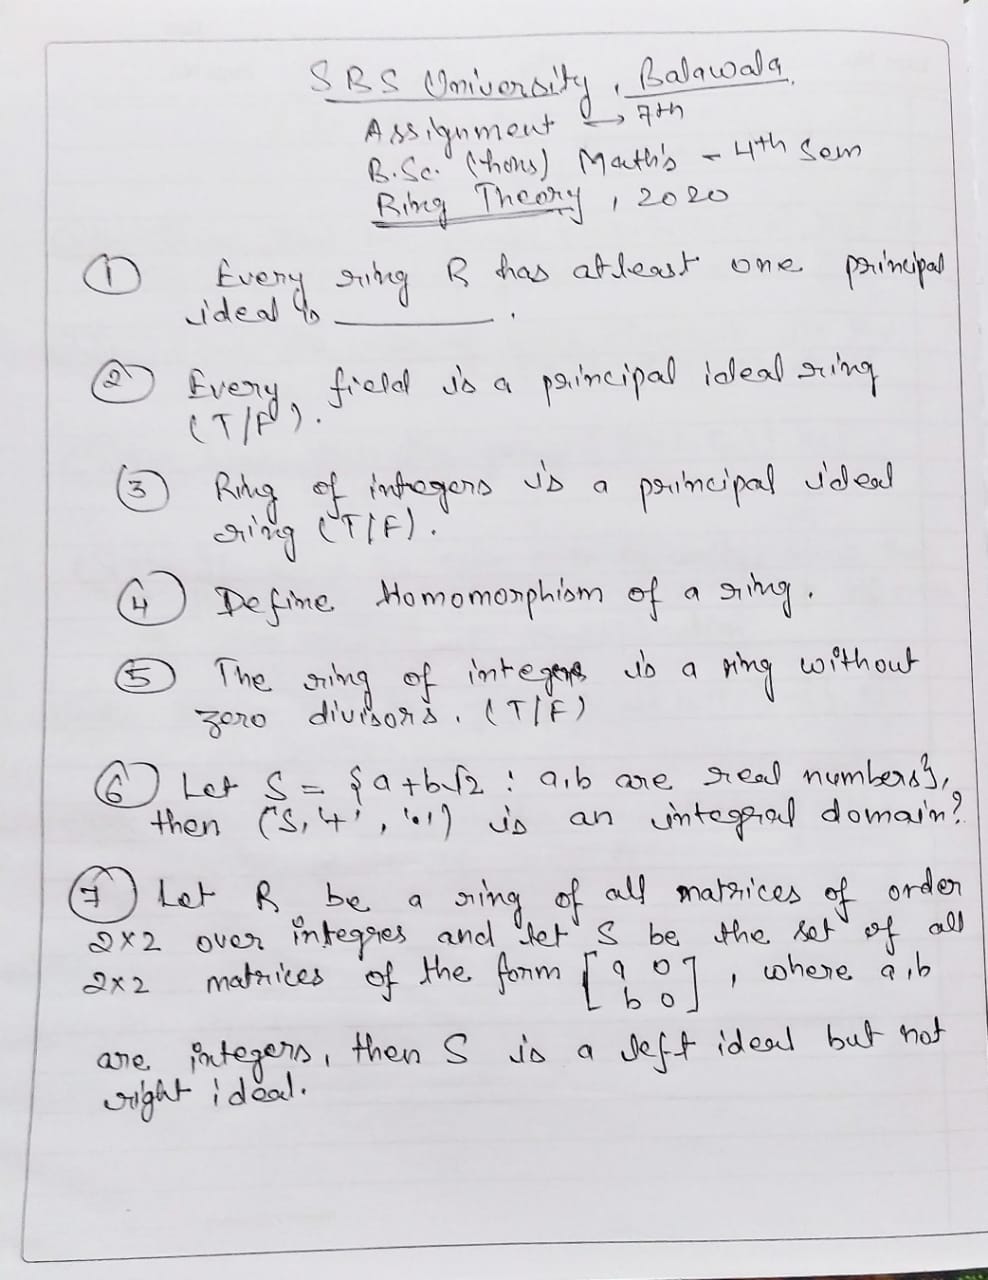 SBS University, Balawala
Assignment → 7th
B.Sc. (hons) Math's - 4th Sem
Ring Theory, 2020
① Every ring R has atleast one principal
ideal is ________.
② Every field is a principal ideal ring
(T/F).
③ Ring of integers is a principal ideal
ring (T/F).
④ Define Homomorphism of a ring.
⑤ The ring of integers is a ring without
zero divisors. (T/F)
⑥ Let S = {a+b√2 : a,b are real numbers},
then (S, '+', '.') is an integral domain?
⑦ Let R be a ring of all matrices of order
2×2 over integres and let S be the set of all
2×2 matrices of the form [a 0
b 0], where a,b
are integers, then S is a left ideal but not
right ideal.